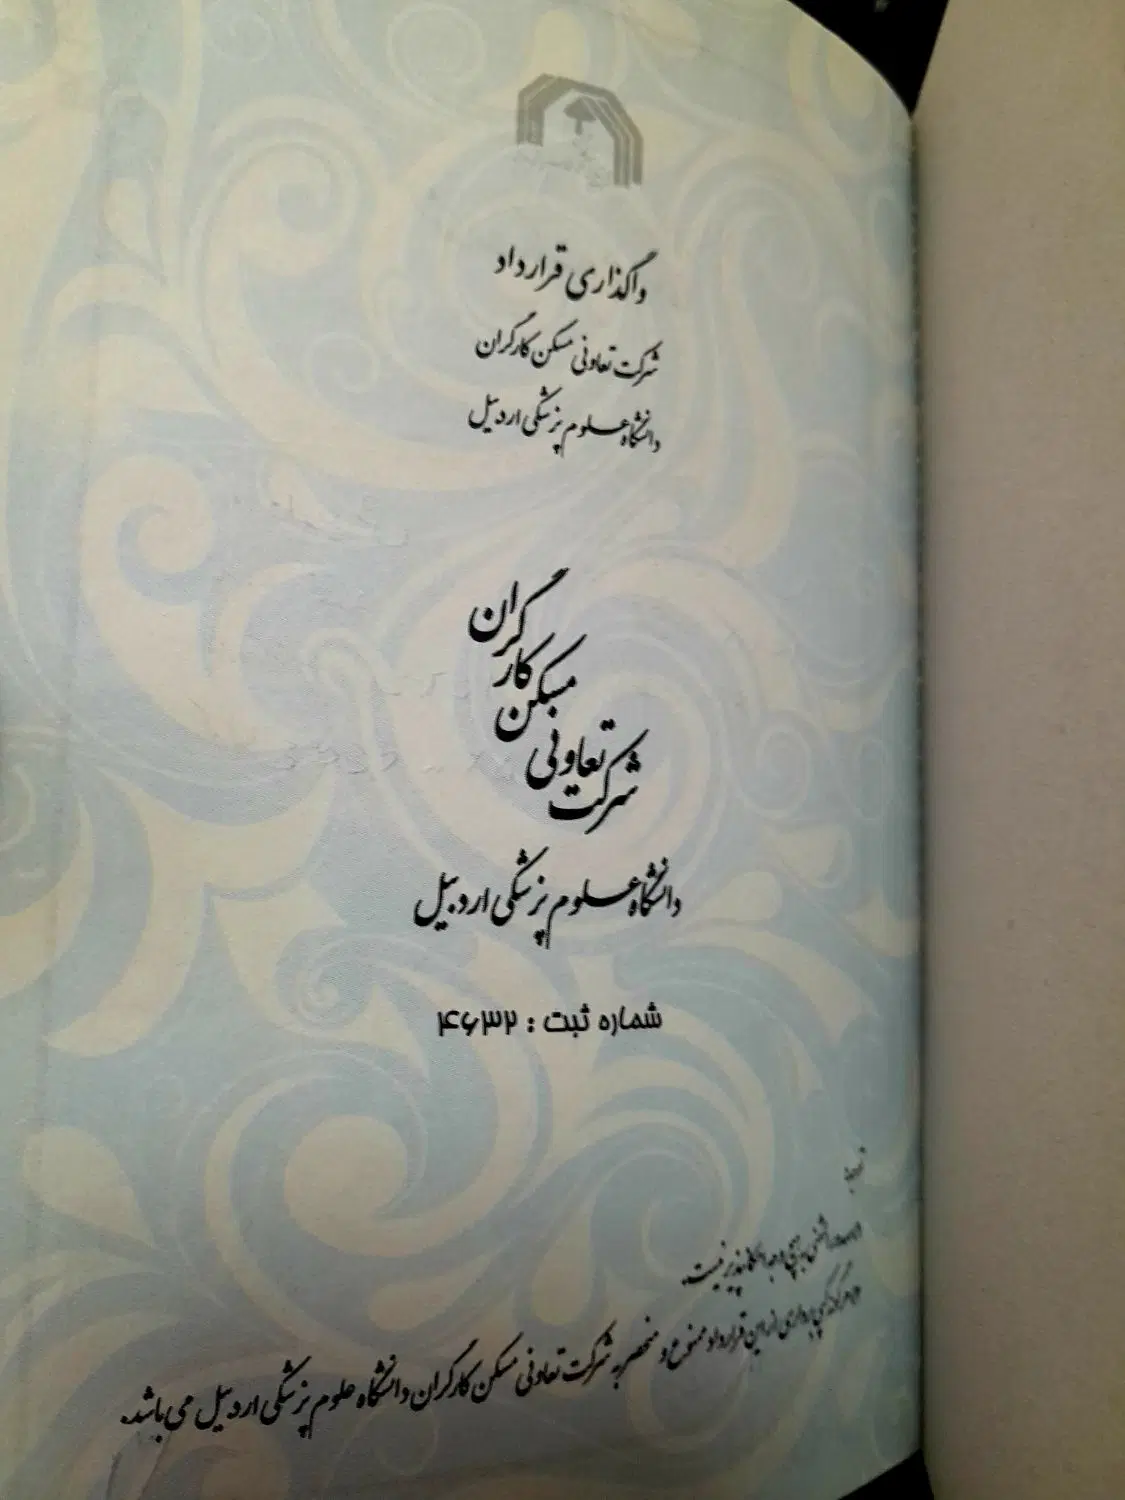 واگذاری قرارداد
شرکت تعاونی مسکن کارگران
دانشگاه علوم پزشکی اردبیل
شرکت تعاونی مسکن کارگران
دانشگاه علوم پزشکی اردبیل
شماره ثبت : ۴۶۳۲
توجه:
به هیچ وجه امکانپذیر نیست.
هرگونه کپی برداری از این قرارداد ممنوع و منحصر به شرکت تعاونی مسکن کارگران دانشگاه علوم پزشکی اردبیل می باشد.